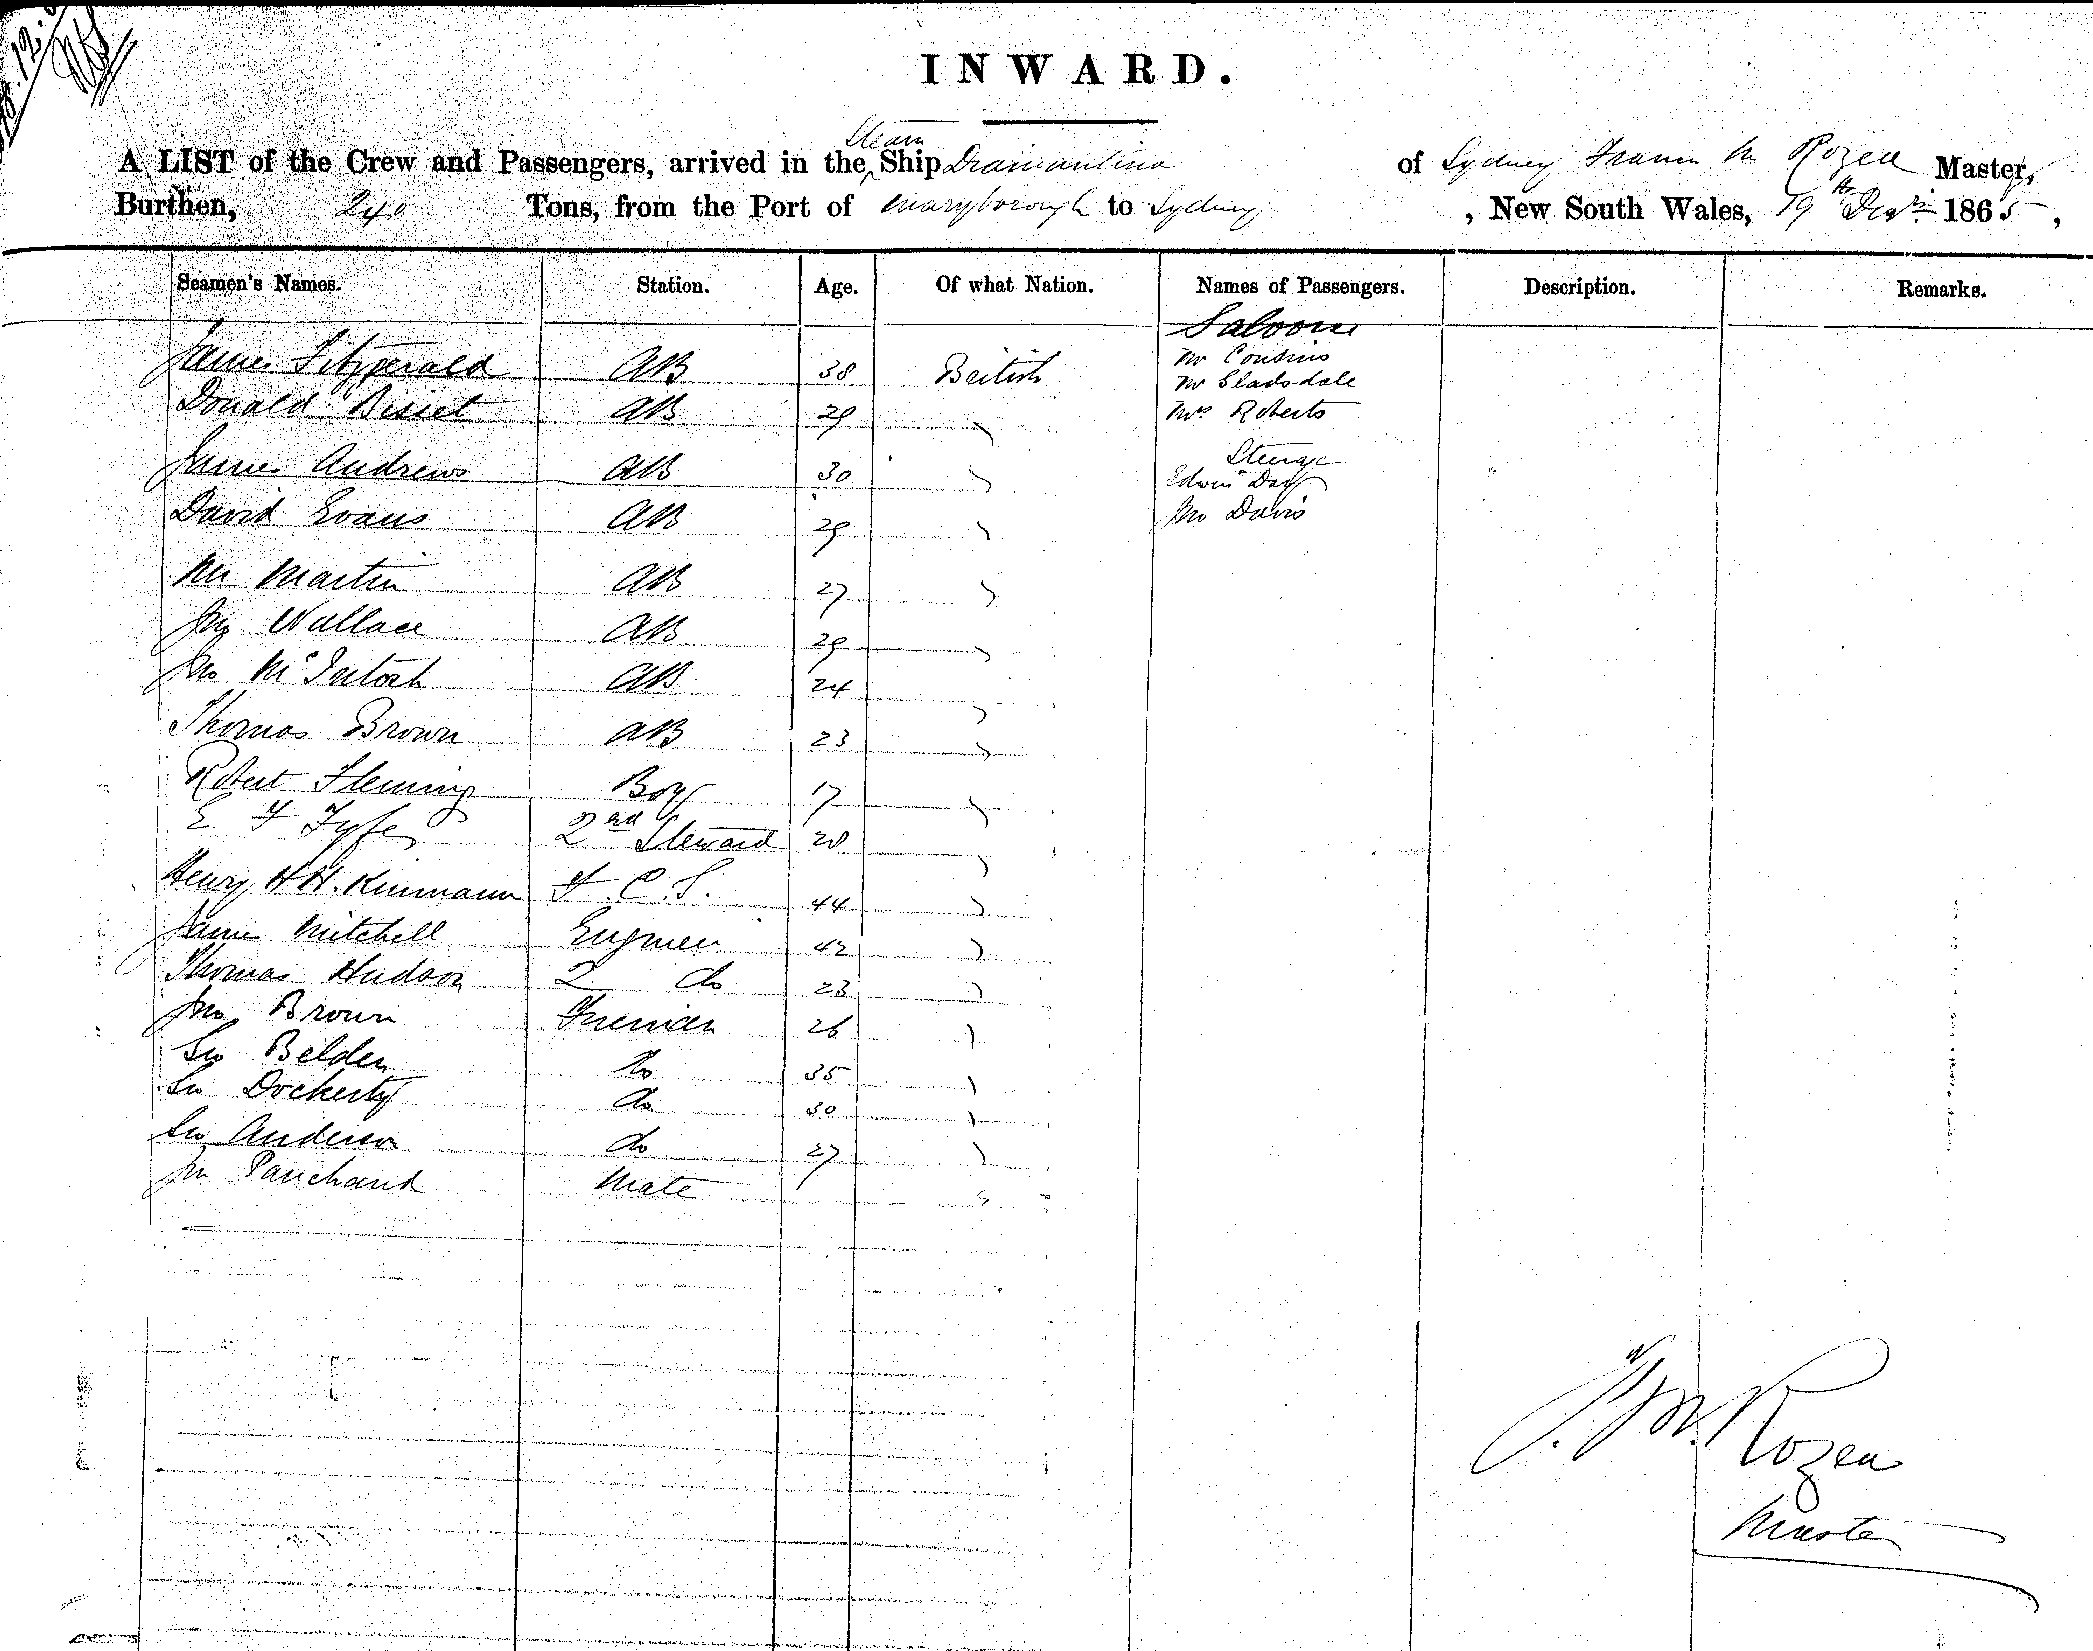 INWARD.
Steam
A LIST of the Crew and Passengers, arrived in the Ship Diamantina of Sydney Francis M Rozea Master,
Burthen, 240 Tons, from the Port of Maryborough to Sydney, New South Wales, 19th Decr 1865,
Seamen's Names. Station. Age. Of what Nation. Names of Passengers. Description. Remarks.
Saloon
James Fitzgerald AB 38 British Mr Cousins
Mr Gladsdale
Donald Bisset AB 29 " Mrs Roberts
Steerage
James Andrews AB 30 " Edwin Day
David Evans AB 29 " Jno Davis
Wm Martin AB 27 "
Jas Wallace AB 29 "
Jno McIntosh AB 24 "
Thomas Brown AB 23 "
Robert Fleming Boy 17 "
E F Fyfe 2nd Steward 28 "
Henry H H. Kinmann F. C. S. 44 "
James Mitchell Engineer 42 "
Thomas Hudson 2 do 23 "
Jno Brown Fireman 26 "
Geo Belden do 35 "
Dockerty do 30 "
Geo Anderson do 27 "
Jno Panchaud Mate "
F. M. Rozea
Master